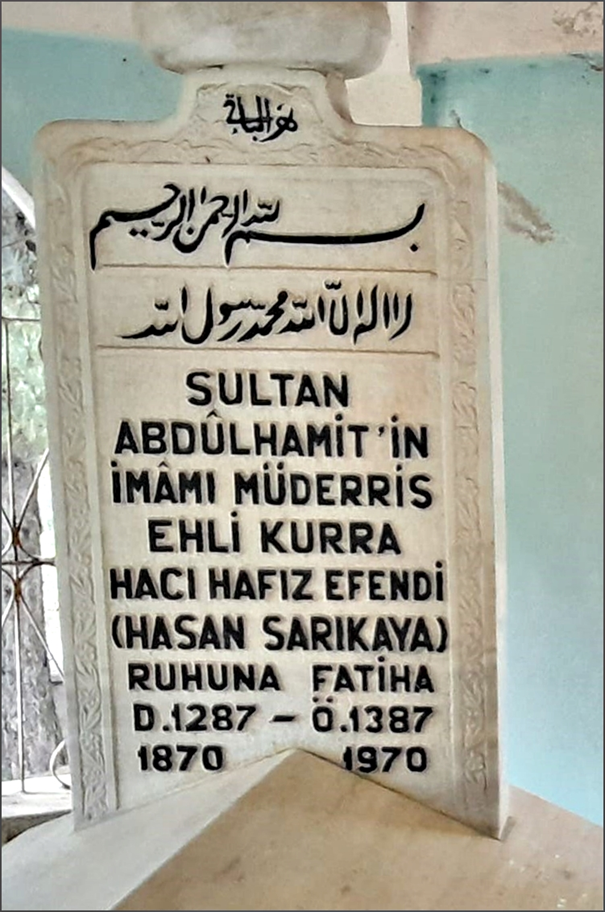 هو الباقي
بسم الله الرحمن الرحيم
لا اله الا الله محمد رسول الله
SULTAN
ABDÛLHAMİT'İN
İMÂMI MÜDERRİS
EHLİ KURRA
HACI HAFIZ EFENDİ
(HASAN SARIKAYA)
RUHUNA FATİHA
D.1287 – Ö.1387
1870 1970